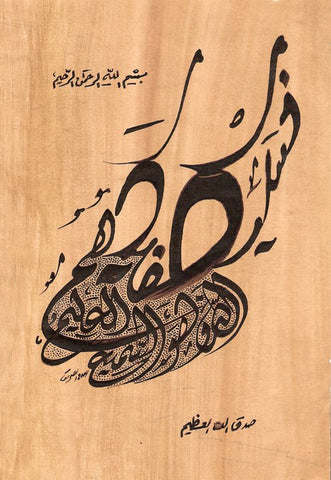 بسم الله الرحمن الرحيم
فسيكفيكهم الله وهو السميع العليم
صدق الله العظيم